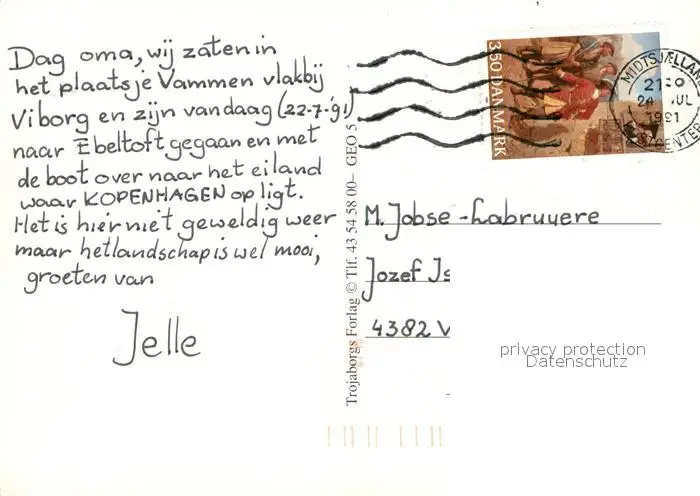 Dag oma, wij zaten in
het plaatsje Vammen vlakbij
Viborg en zijn vandaag (22-7-'91)
naar Ebeltoft gegaan en met
de boot over naar het eiland
waar KOPENHAGEN op ligt.
Het is hier niet geweldig weer
maar het landschap is wel mooi,
groeten van
Jelle
Trojaborgs Forlag © Tlf. 43 54 58 00– GEO 5
350 DANMARK
MIDTSJÆLLAN
21
24 JUL
1991
M. Jobse - Labruyere
Jozef Is
4382 V
privacy protection
Datenschutz